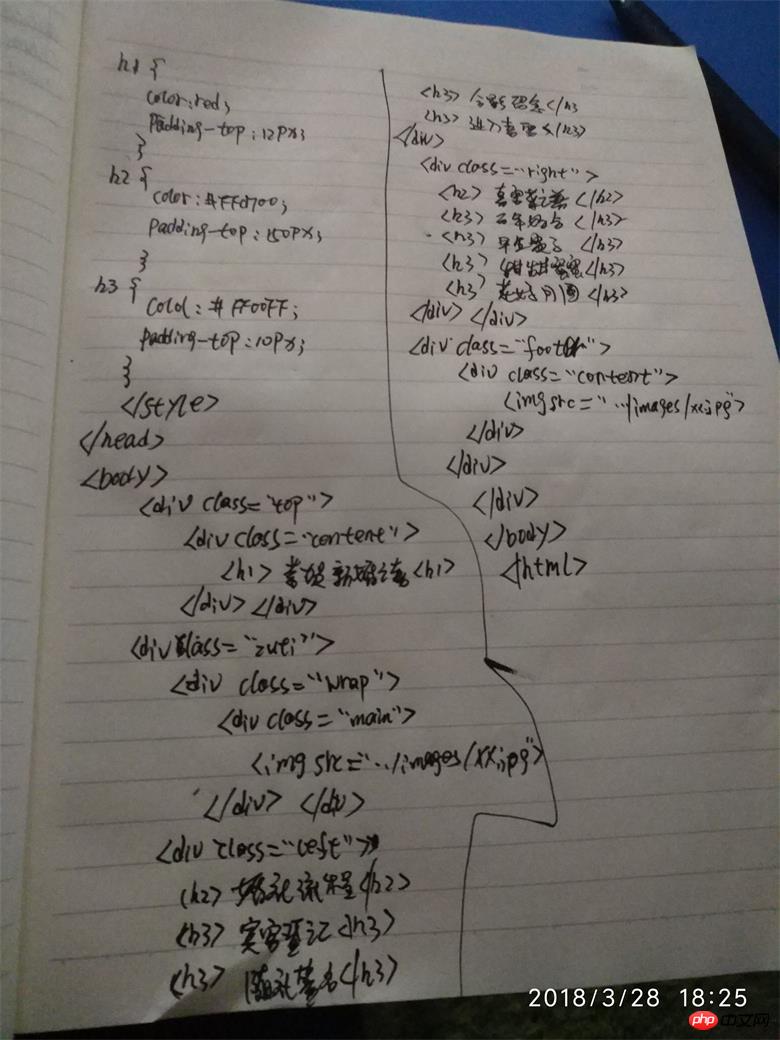 h1 {
color:red;
Padding-top:12Px;
}
h2 {
color:#FFd700;
Padding-top:150Px;
}
h3 {
Color:#FF00FF;
Padding-top:10Px;
}
</style>
</head>
<body>
<div class="top">
<div class="content">
<h1>恭贺新婚之喜<h1>
</div></div>
<div class="zuti">
<div class="wrap">
<div class="main">
<img src="../images/xx.jpg">
</div></div>
<div class="left">
<h2>婚礼流程</h2>
<h3>宾客登记</h3>
<h3>随礼签名</h3>
<h3>合影留念</h3
<h3>进入喜宴</h3>
</div>
<div class="right">
<h2>喜宴菜之谱</h2>
<h3>百年好合</h3>
<h3>早生贵子</h3>
<h3>甜甜蜜蜜</h3>
<h3>花好月圆</h3>
</div></div>
<div class="footer">
<div class="content">
<img src="../images/xx.jpg">
</div>
</div>
</div>
</body>
</html>
2018/3/28 18:25
php中文网